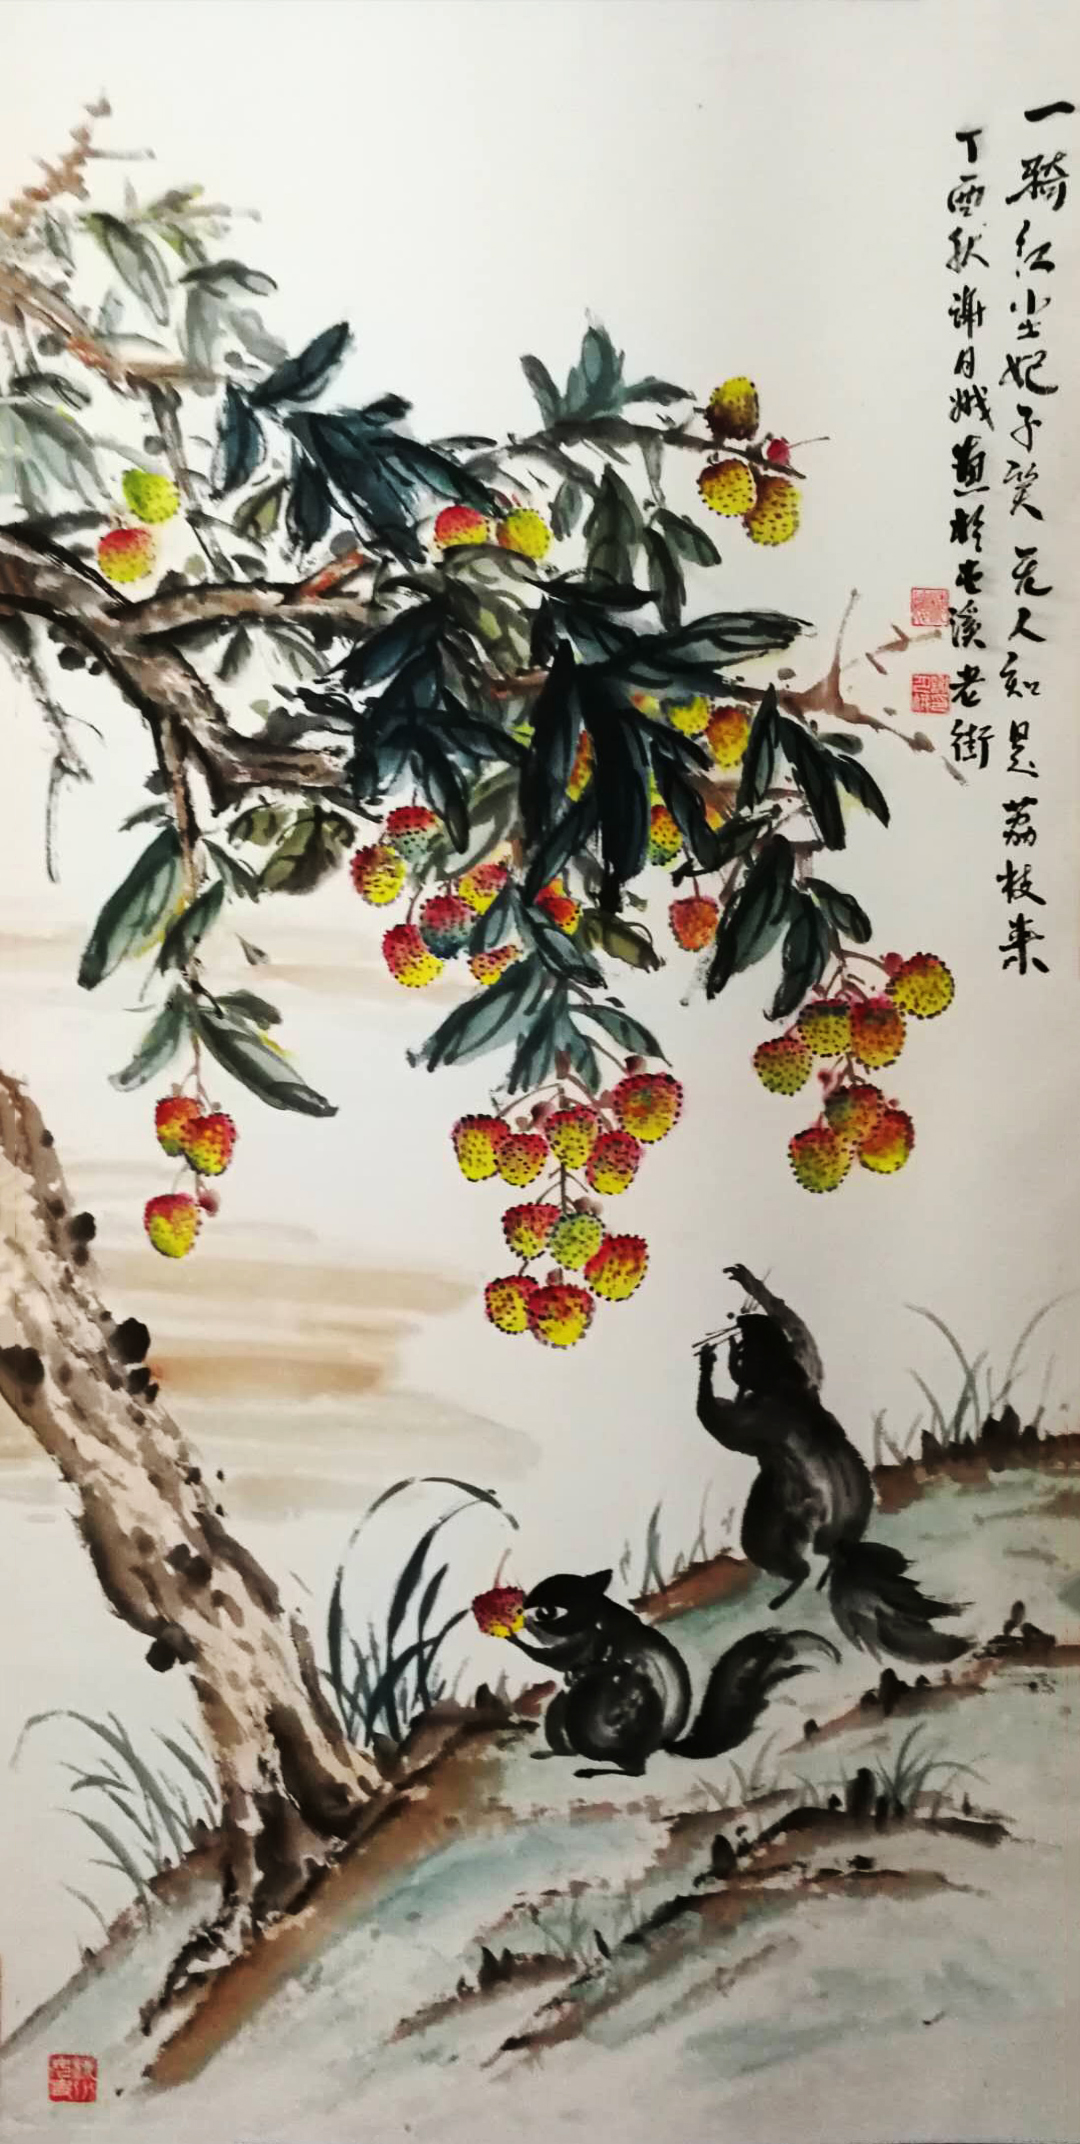 一骑红尘妃子笑无人知是荔枝来
丁酉秋谢月娥画於屯溪老街